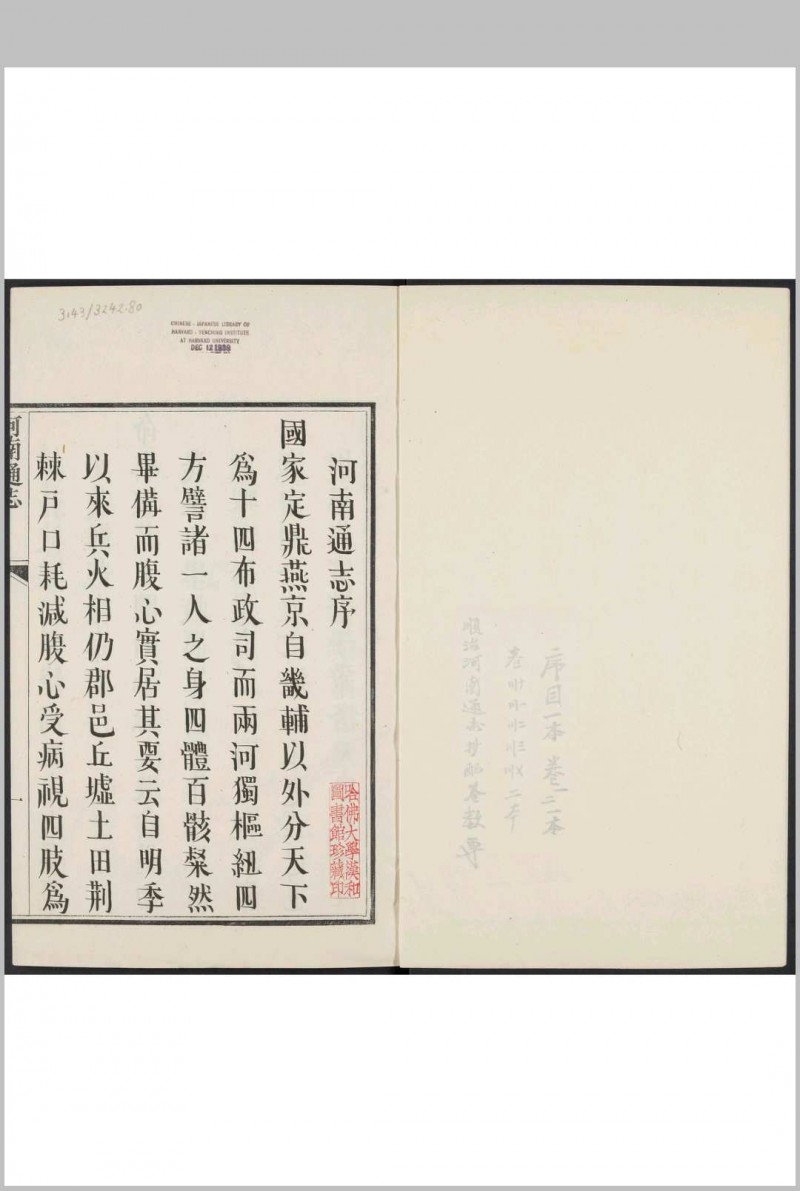 序目一本 卷一二本
順治河南通志
河南通志序
國家定鼎燕京自畿輔以外分天下
爲十四布政司而兩河獨樞紐四
方譬諸一人之身四體百骸粲然
畢備而腹心實居其要云自明季
以來兵火相仍郡邑丘墟土田荆
棘戸口耗減腹心受病視四肢爲
河南通志
一
哈佛大學漢和
圖書館珍藏印
3143/3242.80
CHINESE - JAPANESE LIBRARY OF
HARVARD - YENCHING INSTITUTE
AT HARVARD UNIVERSITY
DEC 12 1939